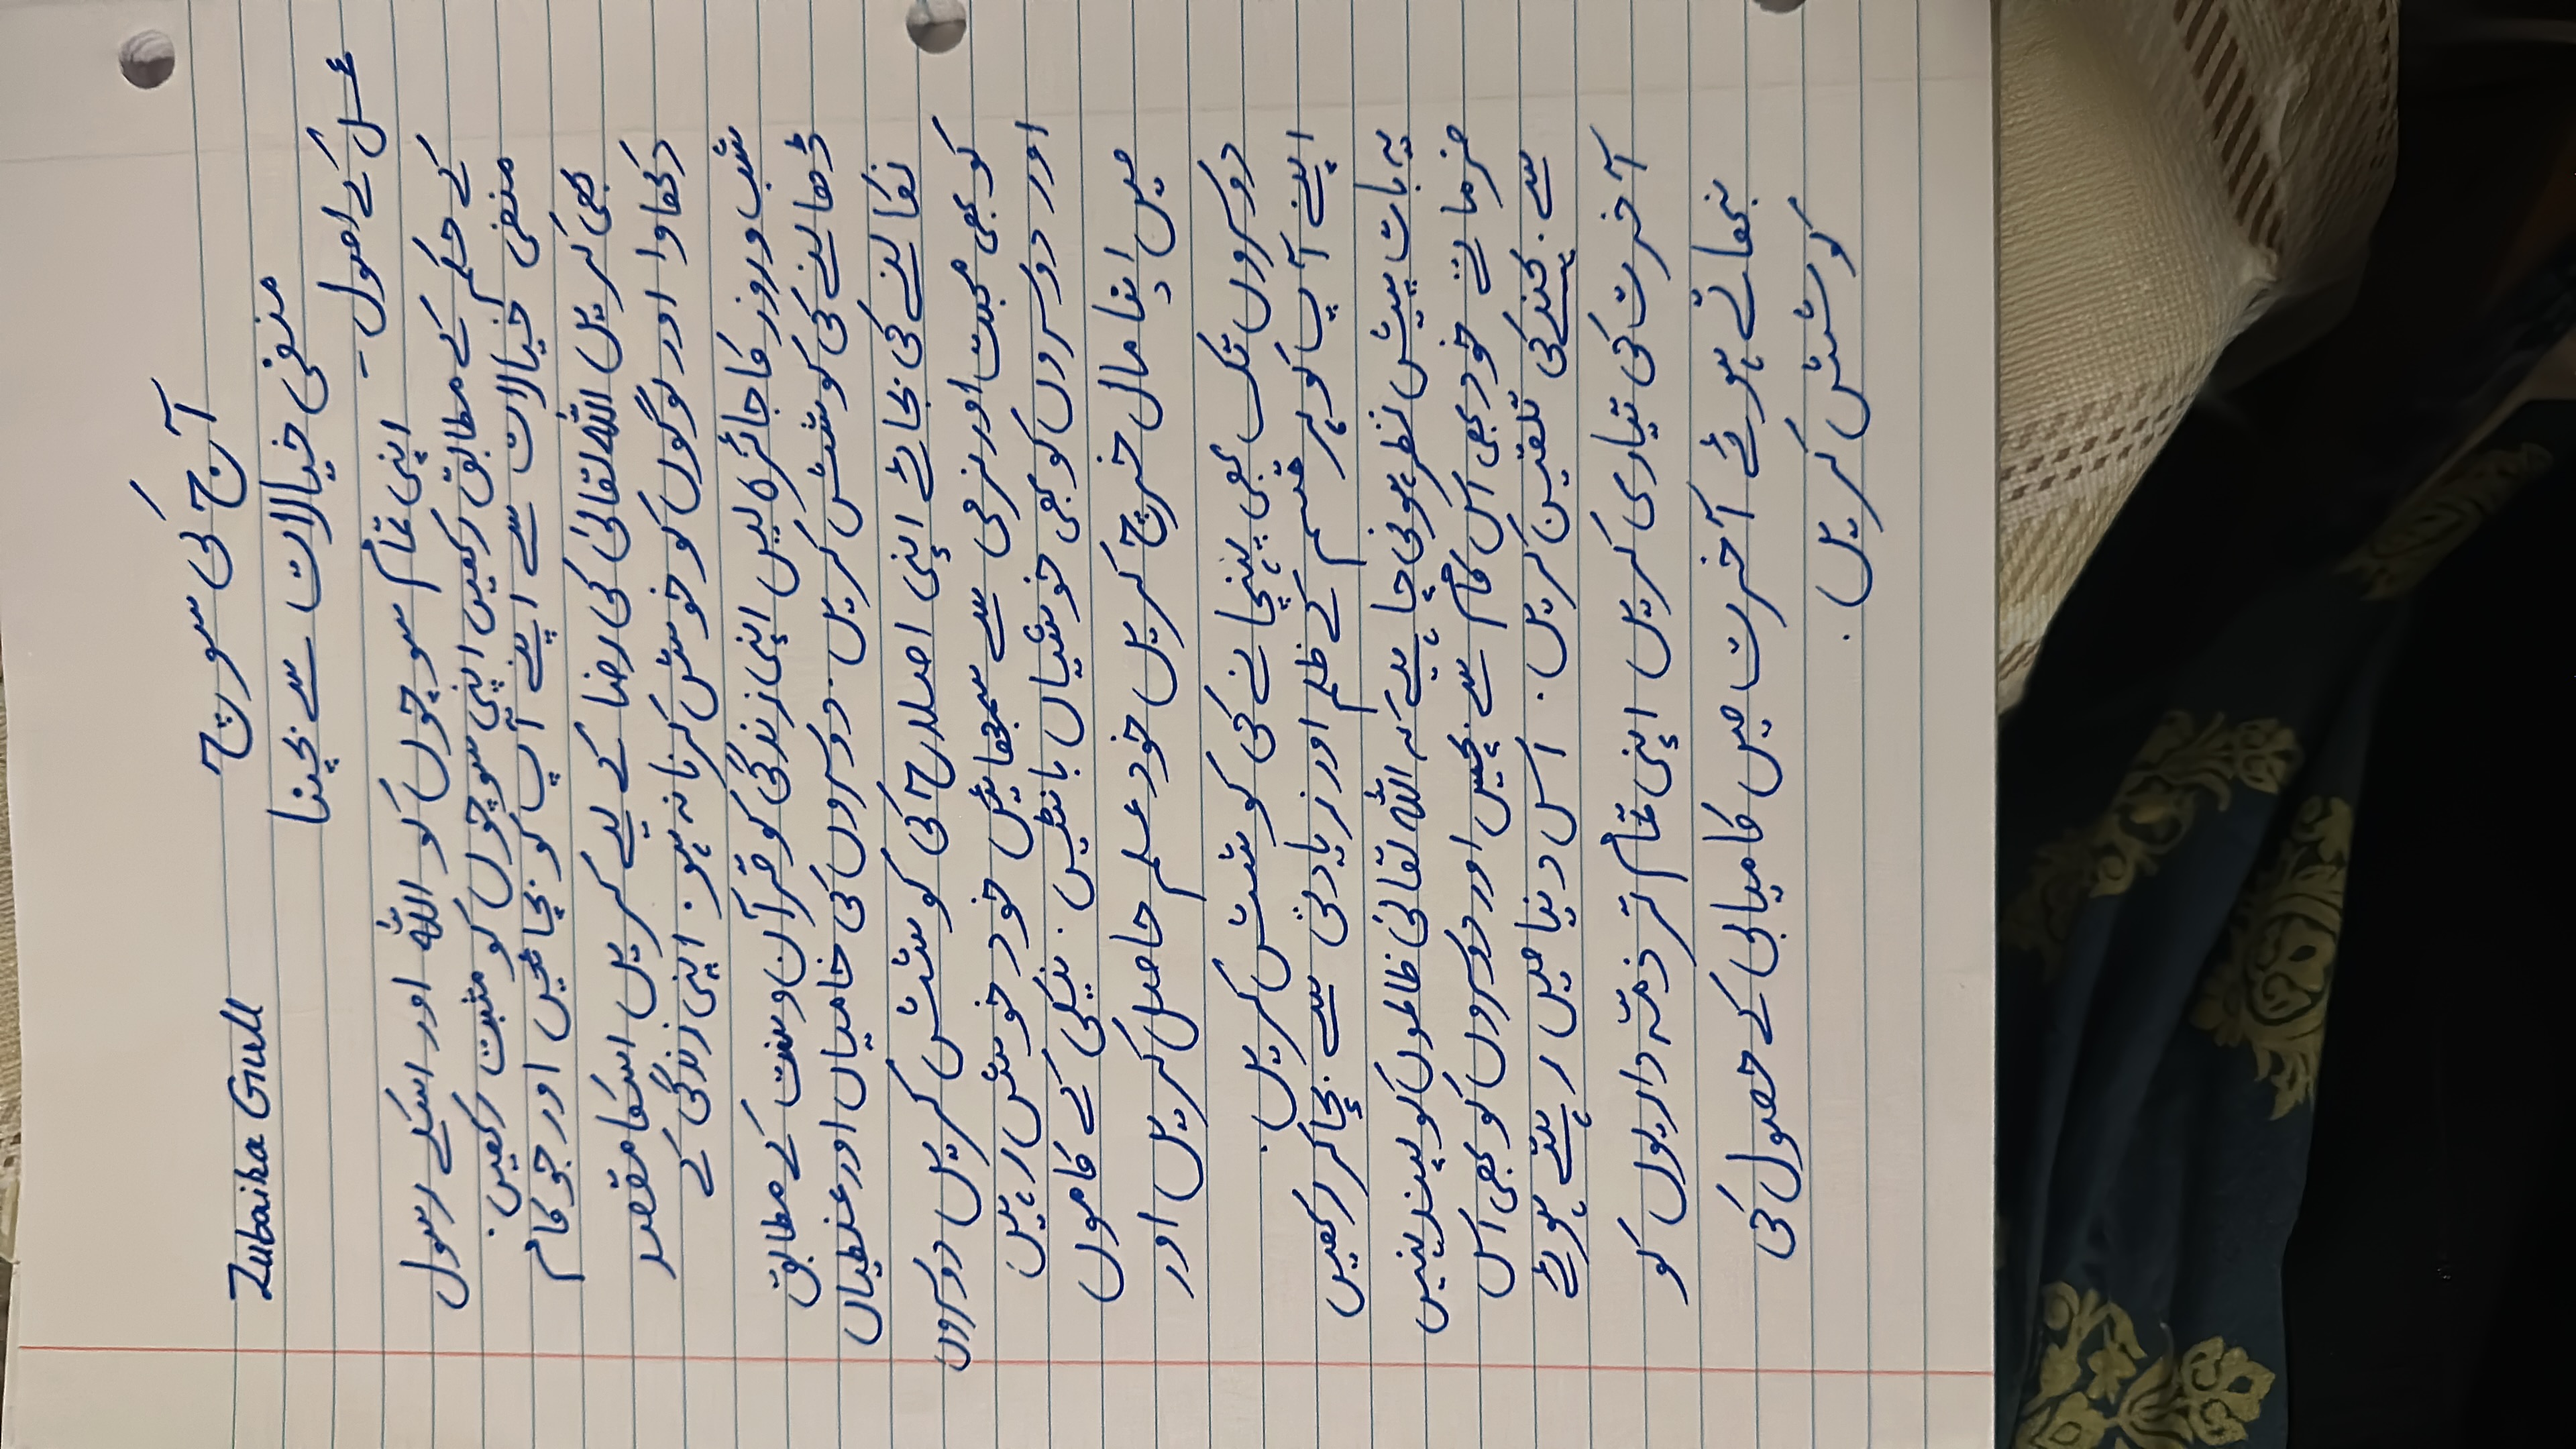 Zubaika Gull
آج کی سوچ
منفی خیالات سے بچنا
عمل کے اصول -
اپنی تمام سوچوں کو اللہ اور اسکے رسول
کے حکم کے مطابق رکھیں اپنی سوچوں کو مثبت رکھیں.
منفی خیالات سے اپنے آپ کو بچائیں اور جو کام
بھی کریں اللہ تعالیٰ کی رضا کے لیے کریں اسکا مقصد
دکھاوا اور لوگوں کو خوش کرنا نہ ہو. اپنی زندگی کے
شب و روز کا جائزہ لیں اپنی زندگی کو قرآن و سنت کے مطابق
ڈھالنے کی کوشش کریں. دوسروں کی خامیاں اور غلطیاں
نکالنے کی بجائے اپنی اصلاح کی کوشش کریں دوسروں
کو بھی محبت اور نرمی سے سمجھائیں خود خوش رہیں
اور دوسروں کو بھی خوشیاں بانٹیں. نیکی کے کاموں
میں اپنا مال خرچ کریں خود علم حاصل کریں اور
دوسروں تک بھی پہنچانے کی کوشش کریں.
اپنے آپ کو ہر قسم کے ظلم اور زیادتی سے بچا کر رکھیں
یہ بات پیش نظر ہونی چاہیے کہ اللہ تعالیٰ ظالموں کو پسند نہیں
فرماتے خود بھی اس کام سے بچیں اور دوسروں کو بھی اس
سے بچنے کی تلقین کریں. اس دنیا میں رہتے ہوئے
آخرت کی تیاری کریں اپنی تمام تر ذمّہ داریوں کو
نبھاتے ہوئے آخرت میں کامیابی کے حصول کی
کوشش کریں.